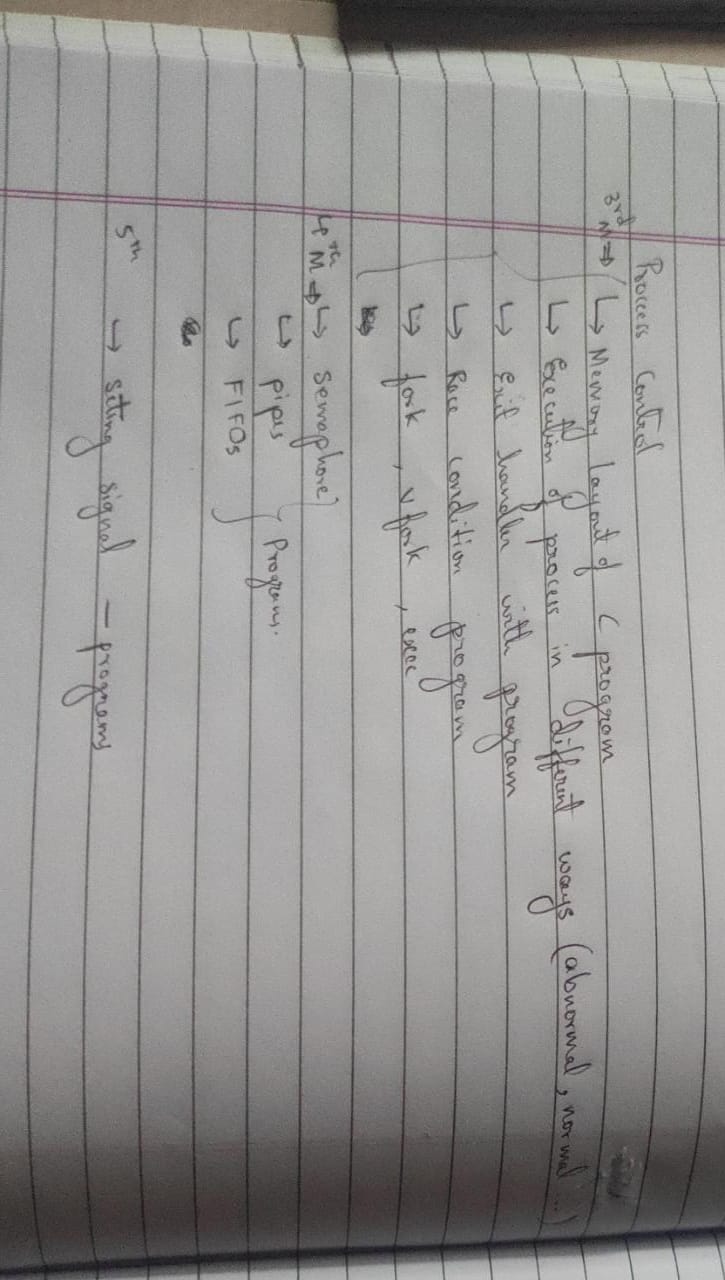 Process Control
3rd M ⇒ ↳ Memory layout of C program
↳ Execution of process in different ways (abnormal, normal ...)
↳ Exit handler with program
↳ Race condition program
↳ fork , vfork , exec
4th M ⇒ ↳ Semaphore
↳ pipes } Programs.
↳ FIFOs
5th → siting signal – programs